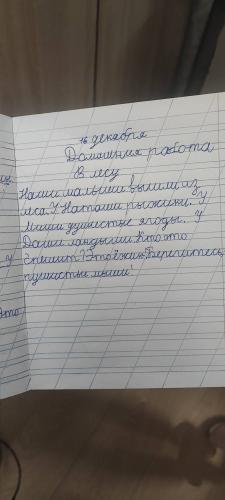 16 декабря
Домашняя работа
В лесу
Наши малыши вышли из
леса. У Наташи рыжики. У
Миши душистые ягоды. У
Даши ландыши. Кто это
спешит? Это ёжик. Берегитесь,
пушистые мыши!